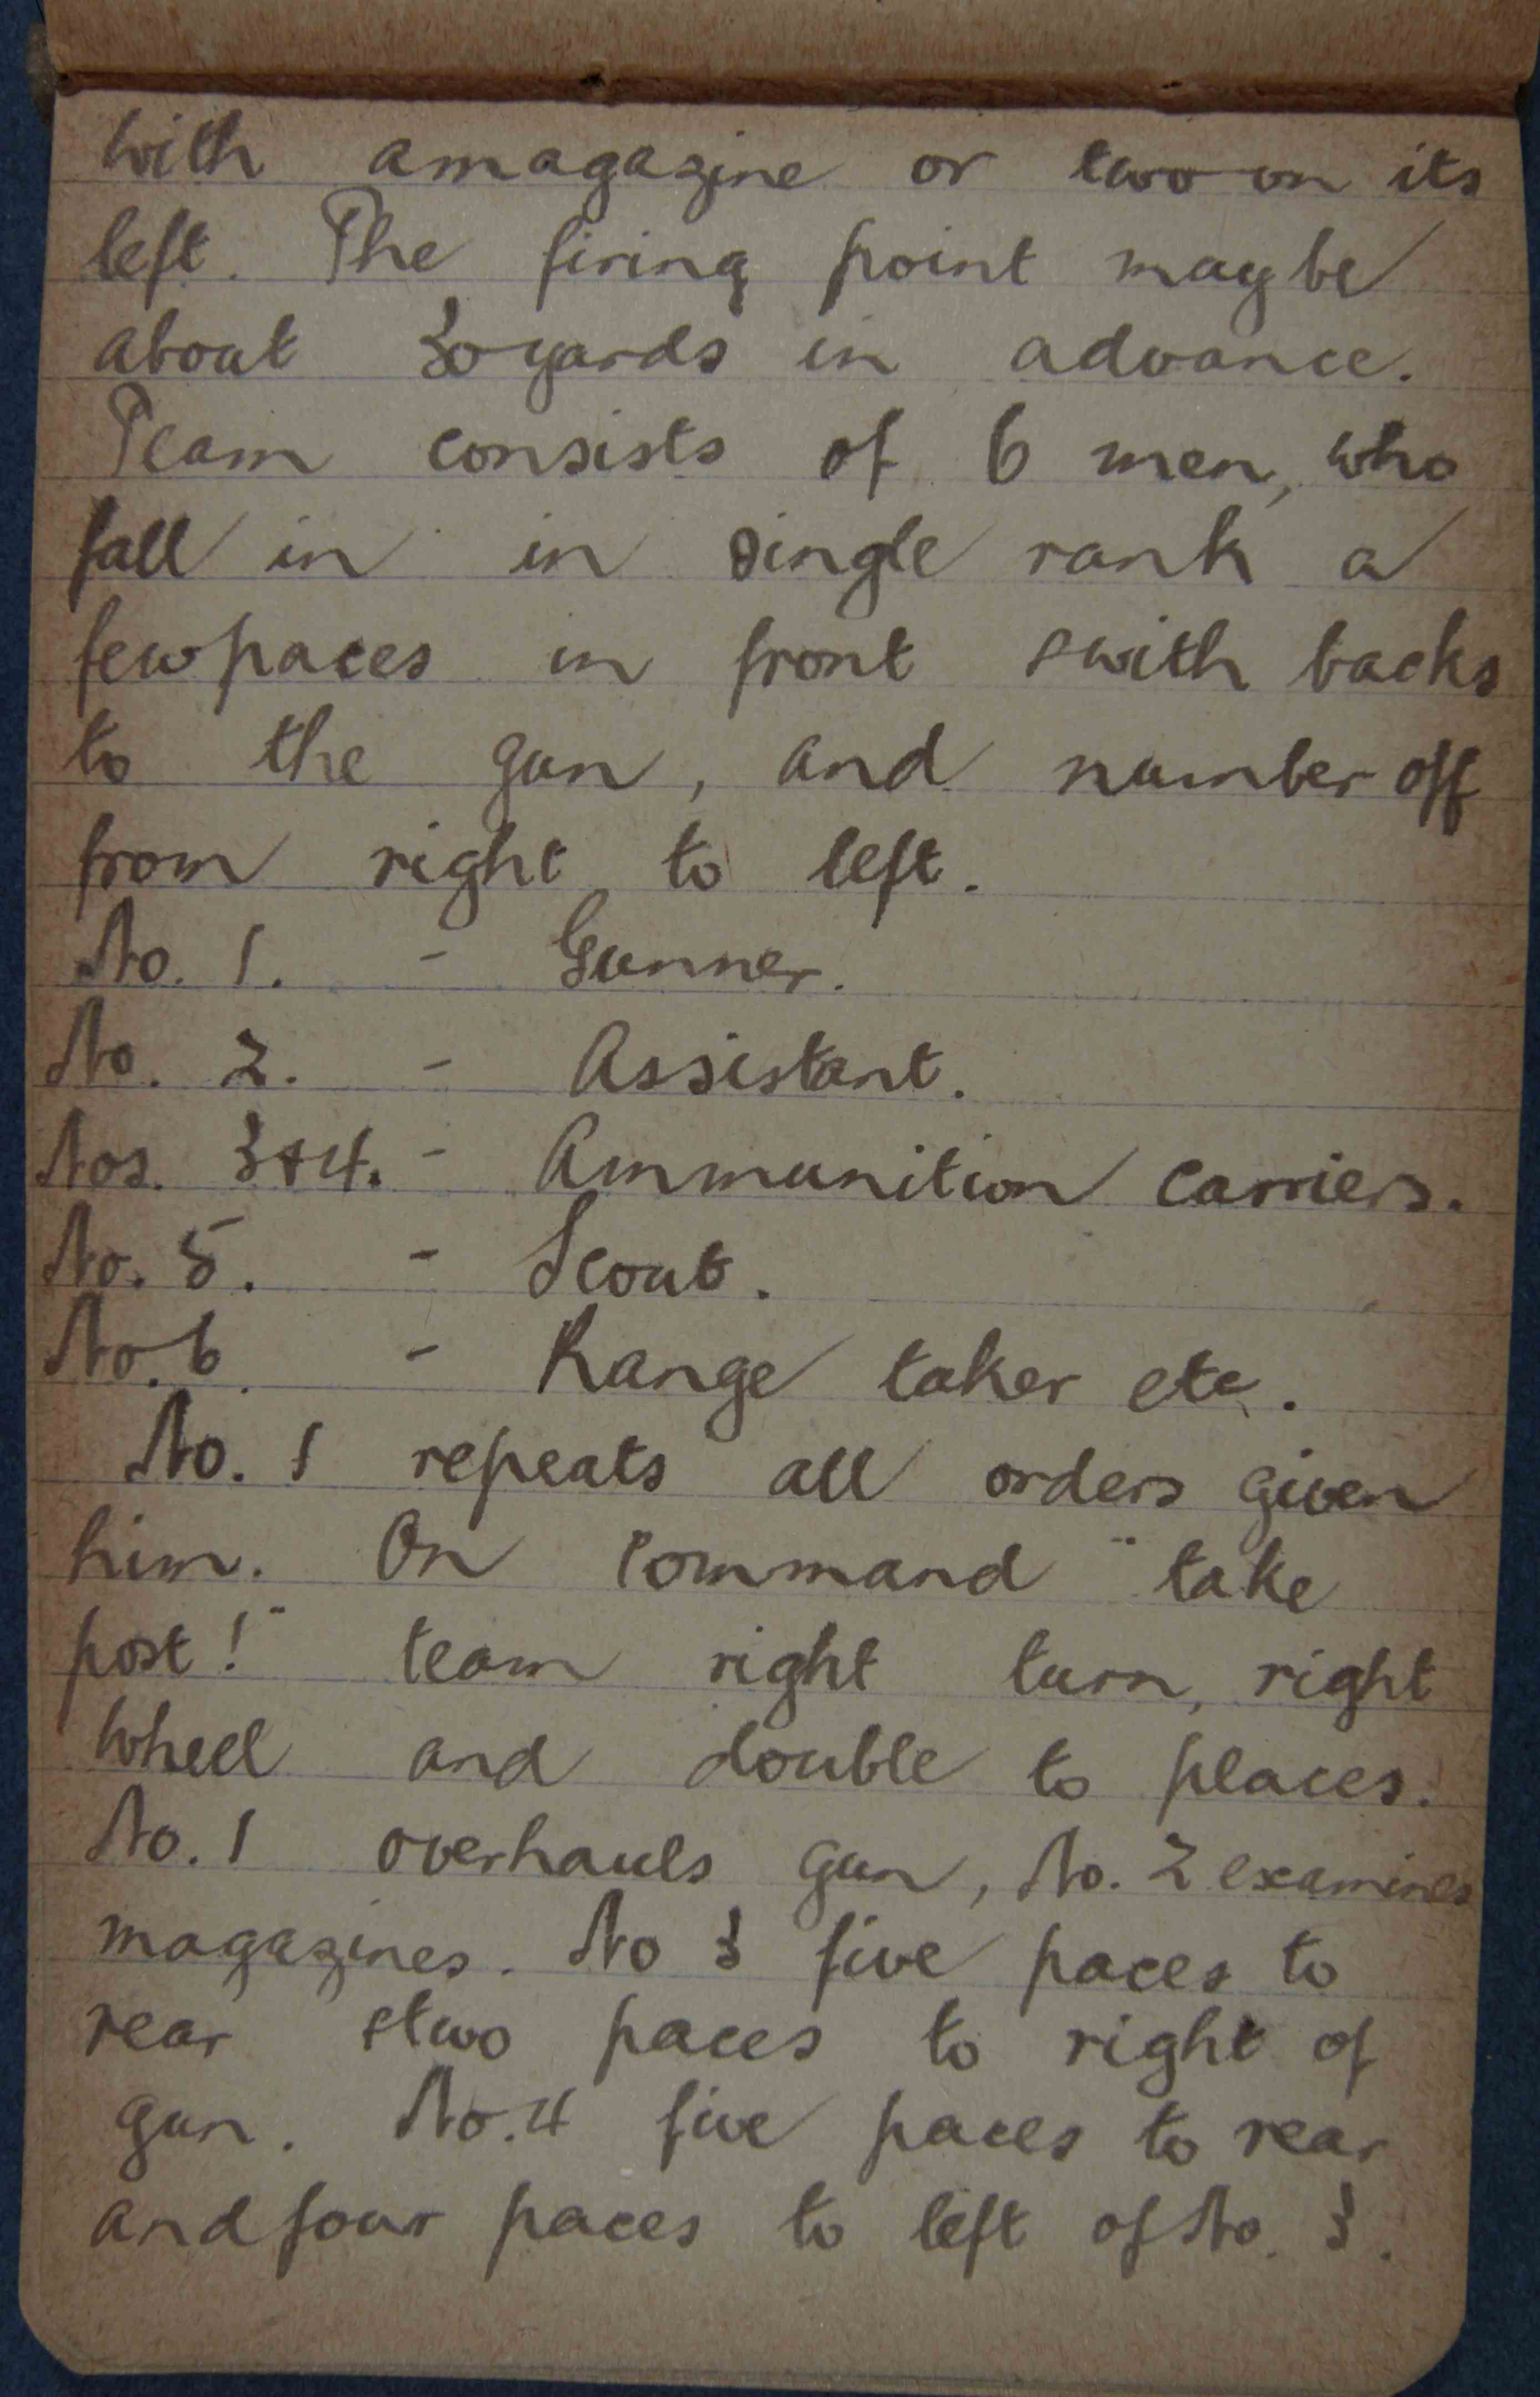 with a magazine or two on its
left. The firing point may be
about 30 yards in advance.
Team consists of 6 men, who
fall in in single rank a
few paces in front & with backs
to the gun, and number off
from right to left.
No. 1. - Gunner.
No. 2. - Assistant.
Nos. 3 & 4. - Ammunition carriers.
No. 5. - Scout.
No. 6. - Range taker etc.
No. 1 repeats all orders given
him. On command "take
post!" team right turn, right
wheel and double to places.
No. 1 overhauls gun, No. 2 examines
magazines. No 3 five paces to
rear & two paces to right of
gun. No. 4 five paces to rear
and four paces to left of No. 3.